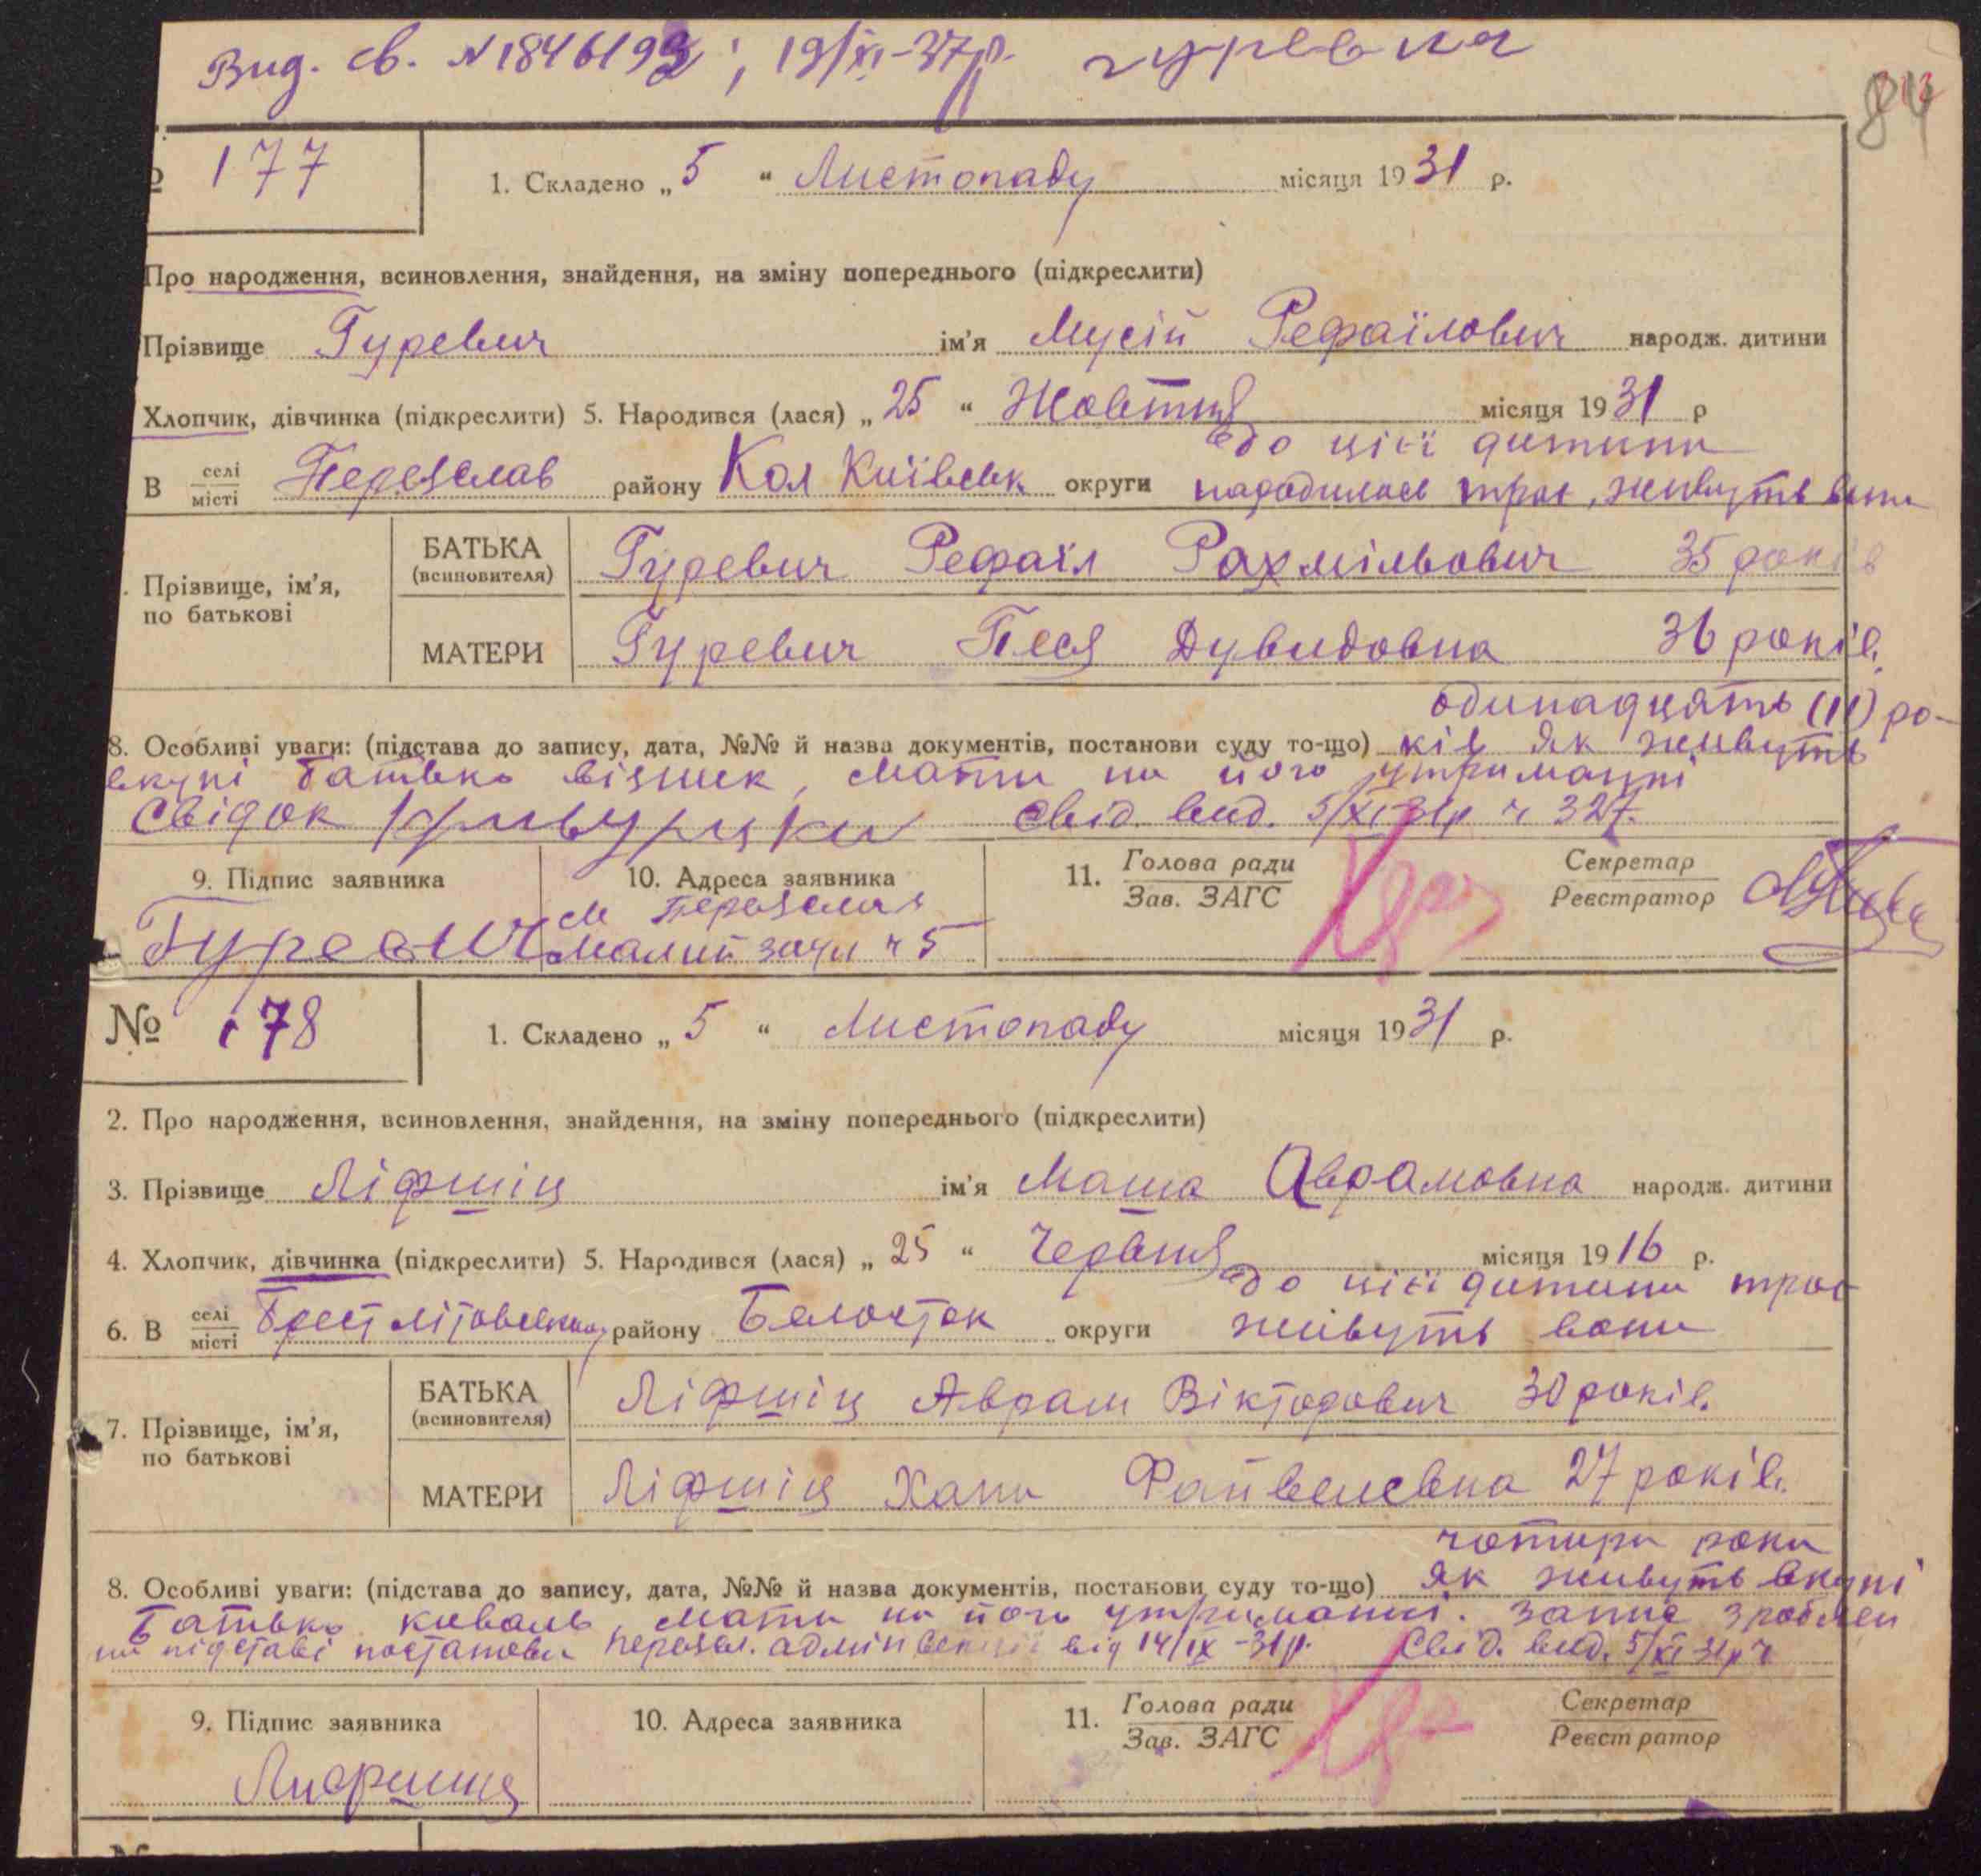 Вид. св. N 1846193; 19/XI-37р. гуревич
84
177
1. Складено „5“ Листопаду місяця 1931 р.
Про народження, всиновлення, знайдення, на зміну попереднього (підкреслити)
Прізвище Гуревич ім'я Мусій Рефаїлович народж. дитини
Хлопчик, дівчинка (підкреслити) 5. Народився (лася) „25“ Жовтня місяця 1931 р
до цієї дитини
В селі місті Переяслав району Кол Київськ округи народилось троє, живуть вони
Прізвище, ім'я, по батькові
БАТЬКА (всиновителя) Гуревич Рефаїл Рахмільович 35 років
МАТЕРИ Гуревич Песя Дувидовна 36 років.
одинадцять (11) ро-
8. Особливі уваги: (підстава до запису, дата, №№ й назва документів, постанови суду то-що) ків як живуть
вкупі батько візник, мати на його утриманні
Свідок свід. вид. 5/XI 31р ч 327.
9. Підпис заявника 10. Адреса заявника 11. Голова ради Зав. ЗАГС Секретар Реєстратор
м Переяслав
Гуревич малий заул ч 5
№ 178
1. Складено „5“ Листопаду місяця 1931 р.
2. Про народження, всиновлення, знайдення, на зміну попереднього (підкреслити)
3. Прізвище Ліфшіц ім'я Маша Аврамовна народж. дитини
4. Хлопчик, дівчинка (підкреслити) 5. Народився (лася) „25“ Червня місяця 1916 р.
до цієї дитини троє
6. В селі місті Брест літовськ району Белосток округи живуть вони
7. Прізвище, ім'я, по батькові
БАТЬКА (всиновителя) Ліфшіц Аврам Вікторович 30 років.
МАТЕРИ Ліфшіц Хана Файвелевна 27 років.
чотири роки
8. Особливі уваги: (підстава до запису, дата, №№ й назва документів, постанови суду то-що) як живуть вкупі
Батько коваль, мати на його утриманні. Запис зроблен
на підставі постанови переясл. адмін секції від 14/IX-31р. Свід. вид. 5/XI 31р ч
9. Підпис заявника 10. Адреса заявника 11. Голова ради Зав. ЗАГС Секретар Реєстратор
Лифшиц